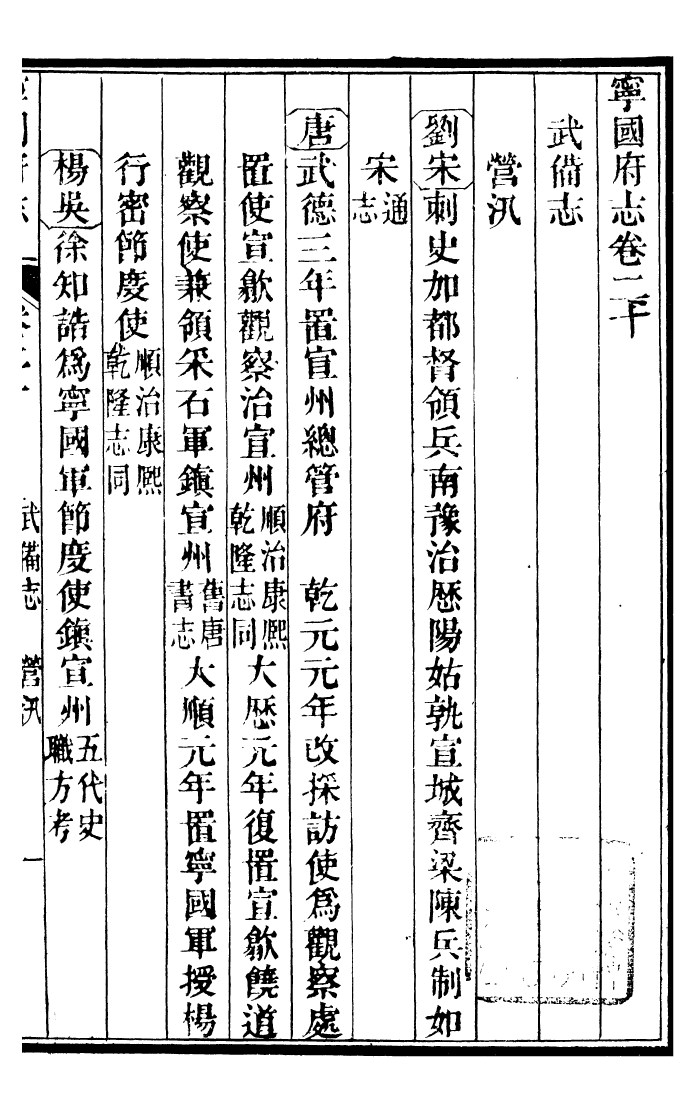 寧國府志卷二十
武備志
營汛
劉宋刺史加都督領兵南豫治歷陽姑孰宣城齊梁陳兵制如
宋通志
唐武德三年置宣州總管府　乾元元年改採訪使爲觀察處
置使宣歙觀察治宣州順治康熙乾隆志同大歷元年復置宣歙饒道
觀察使兼領采石軍鎭宣州舊唐書志大順元年置寧國軍授楊
行密節度使順治康熙乾隆志同
楊吳徐知誥爲寧國軍節度使鎭宣州五代史職方考
武備志　營汛　一